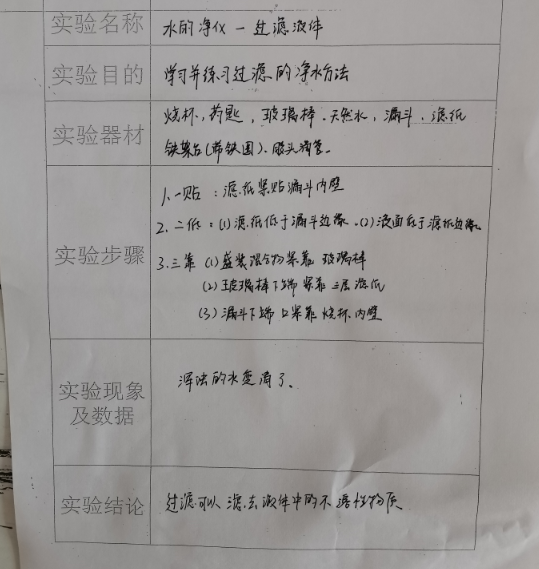 实验名称 水的净化 - 过滤液体
实验目的 学习并练习过滤的净水方法
实验器材 烧杯，药匙，玻璃棒、天然水，漏斗，滤纸
铁架台(带铁圈)、胶头滴管。
实验步骤
1、一贴：滤纸紧贴漏斗内壁
2、二低：(1)滤纸低于漏斗边缘、(2)液面低于滤纸边缘
3、三靠 (1)盛装混合物紧靠玻璃棒
(2)玻璃棒下端紧靠三层滤纸
(3)漏斗下端口紧靠烧杯内壁
实验现象及数据
浑浊的水变清了、
实验结论 过滤可以滤去液体中的不溶性物质